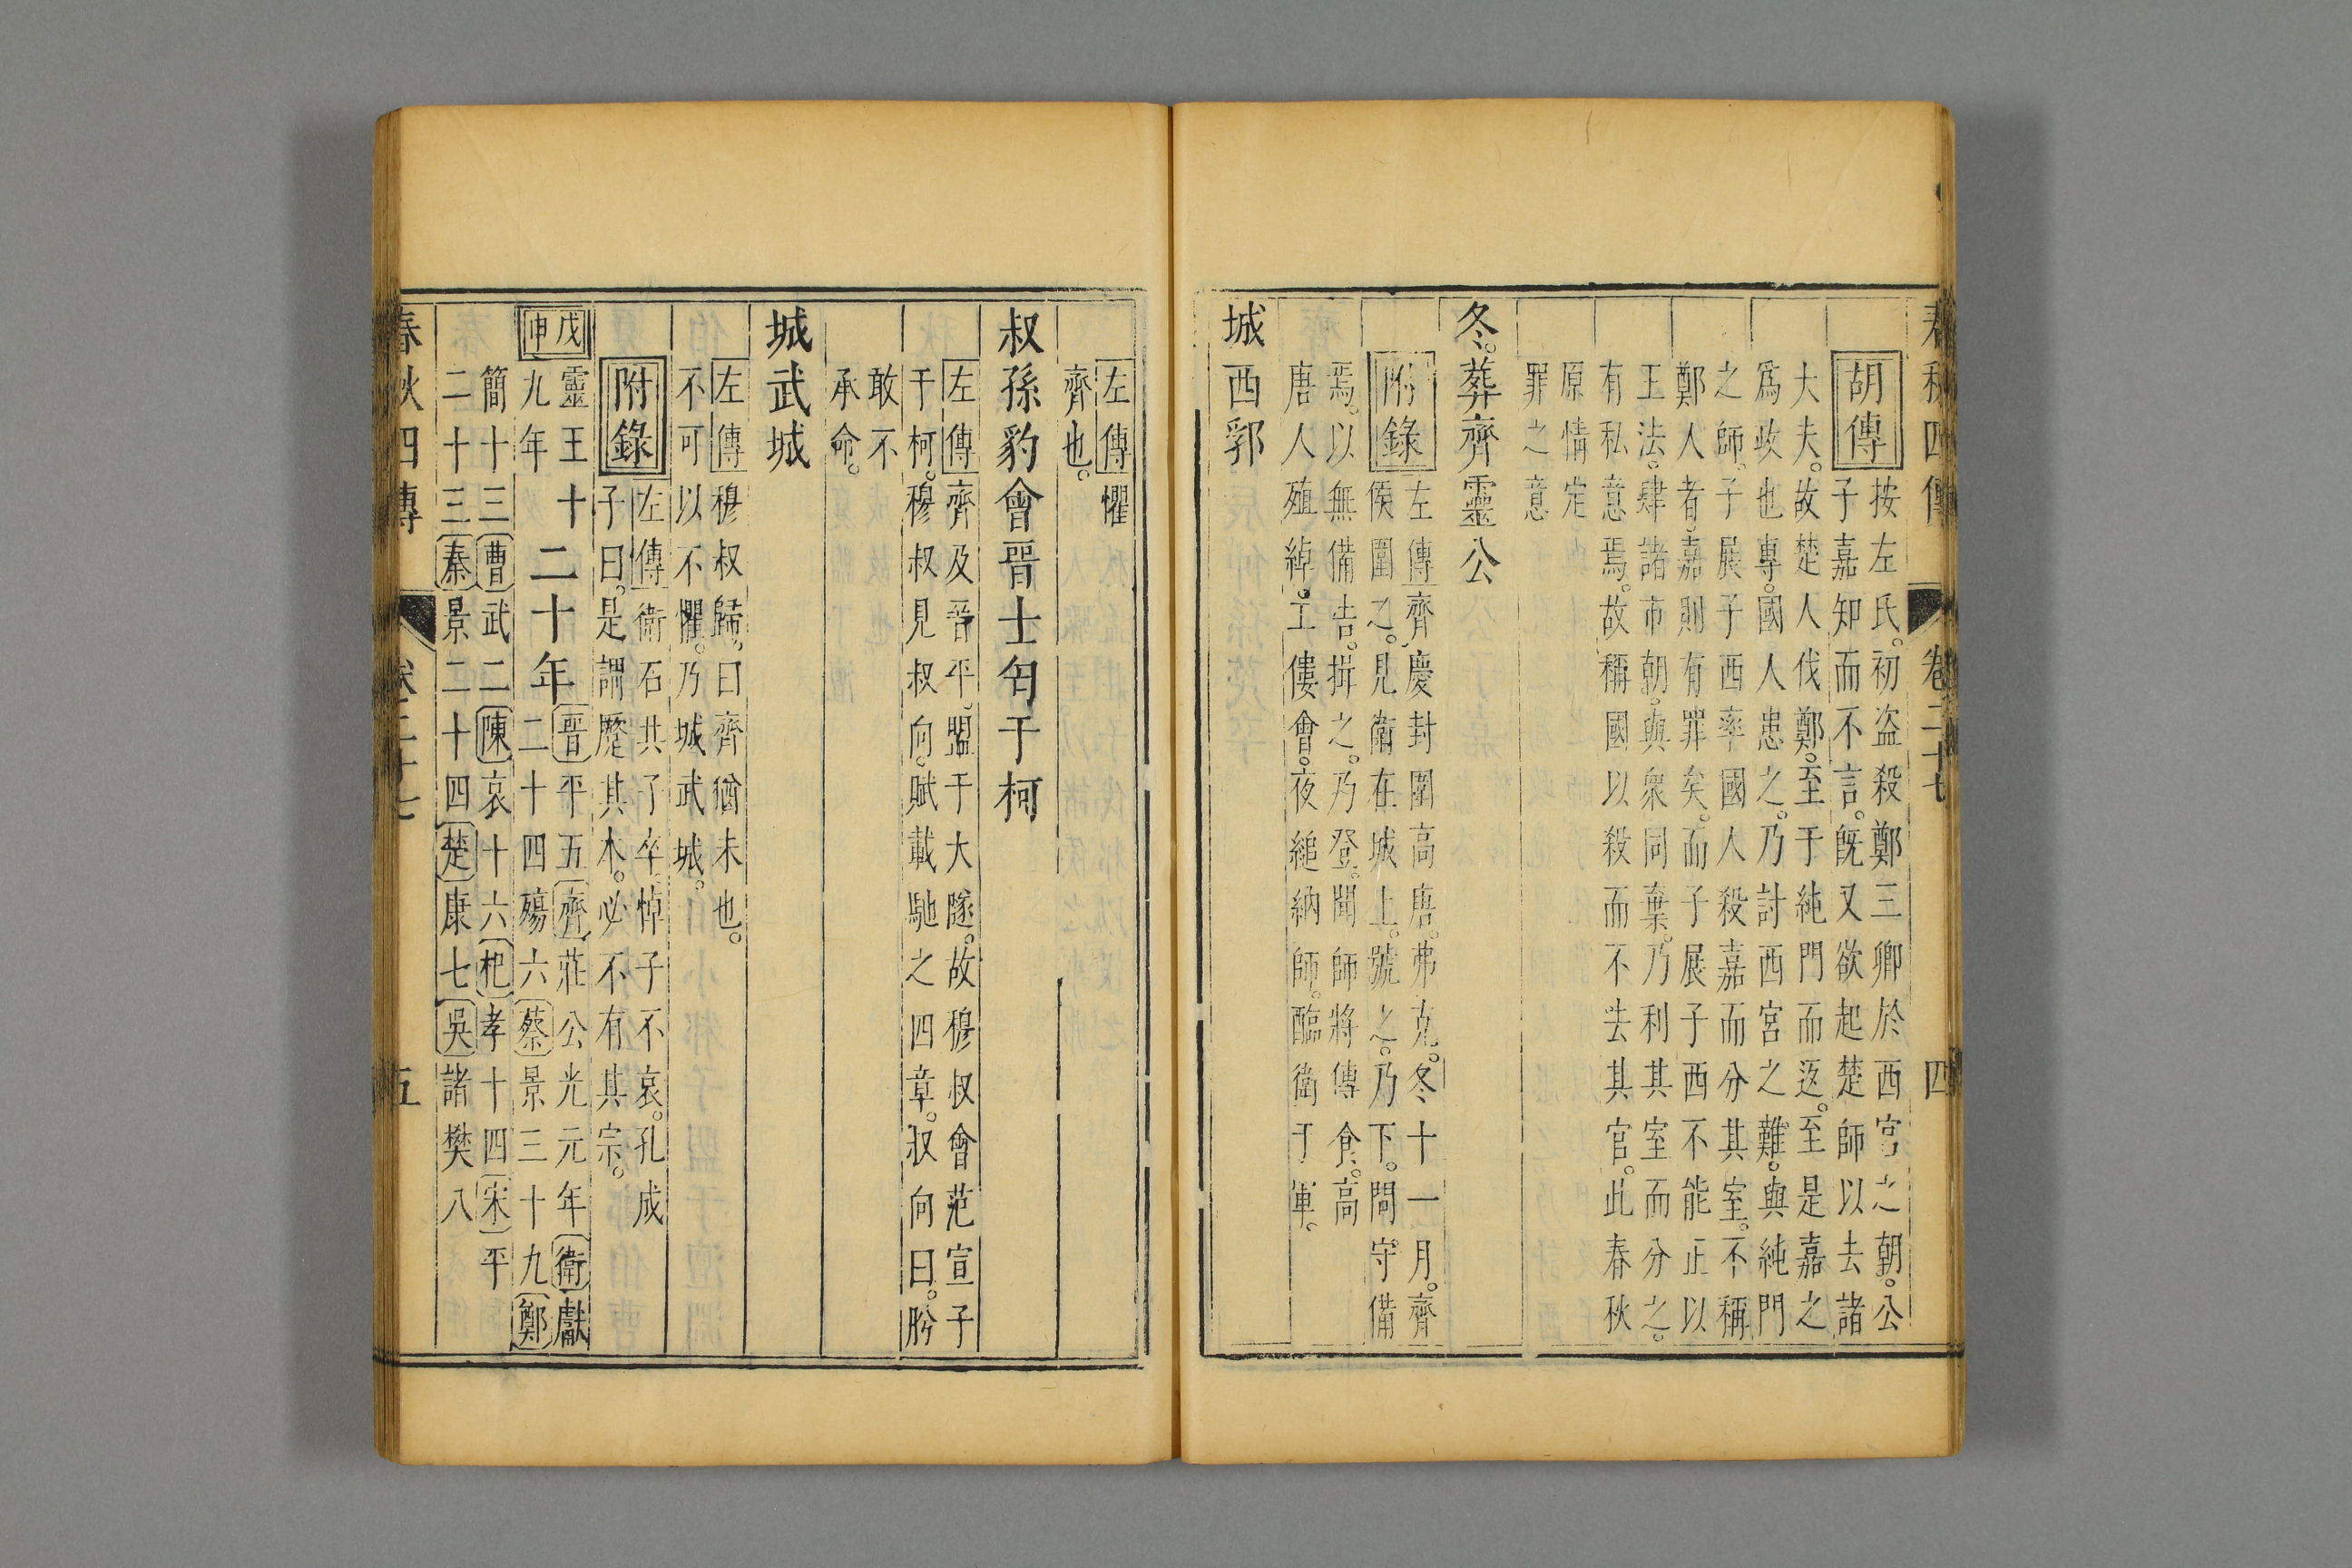 春秋四傳 卷二十七 四
胡傳
按左氏。初盜殺鄭三卿於西宮之朝。公
子嘉知而不言。旣又欲起楚師以去諸
大夫。故楚人伐鄭。至于純門而返。至是嘉之
爲政也專。國人患之。乃討西宮之難。與純門
之師。子展子西率國人殺嘉而分其室。不稱
鄭人者。嘉則有罪矣。而子展子西不能正以
王法。肆諸市朝。與衆同棄。乃利其室而分之。
有私意焉。故稱國以殺而不去其官。此春秋
原情定
罪之意
冬。葬齊靈公
附錄
左傳齊慶封圍高唐。弗克。冬十一月。齊
侯圍之。見衛在城上。號之。乃下。問守備
焉。以無備告。揖之。乃登。聞師將傳食。高
唐人殖綽。工僂會。夜縋納師。醢衛于軍。
城西郛
左傳懼
齊也。
叔孫豹會晉士匄于柯
左傳齊及晉平。盟于大隧。故穆叔會范宣子
于柯。穆叔見叔向。賦載馳之四章。叔向曰。肸
敢不
承命。
城武城
左傳穆叔歸。曰齊猶未也。
不可以不懼。乃城武城。
附錄
左傳衛石共子卒。悼子不哀。孔成
子曰。是謂蹷其本。必不有其宗。
戊申
靈王十
九年
二十年
晉平五齊莊公光元年衛獻
二十四殤六蔡景三十九鄭
簡十三曹武二陳哀十六杞孝十四宋平
二十三秦景二十四楚康七吳諸樊八
春秋四傳 卷二十七 五